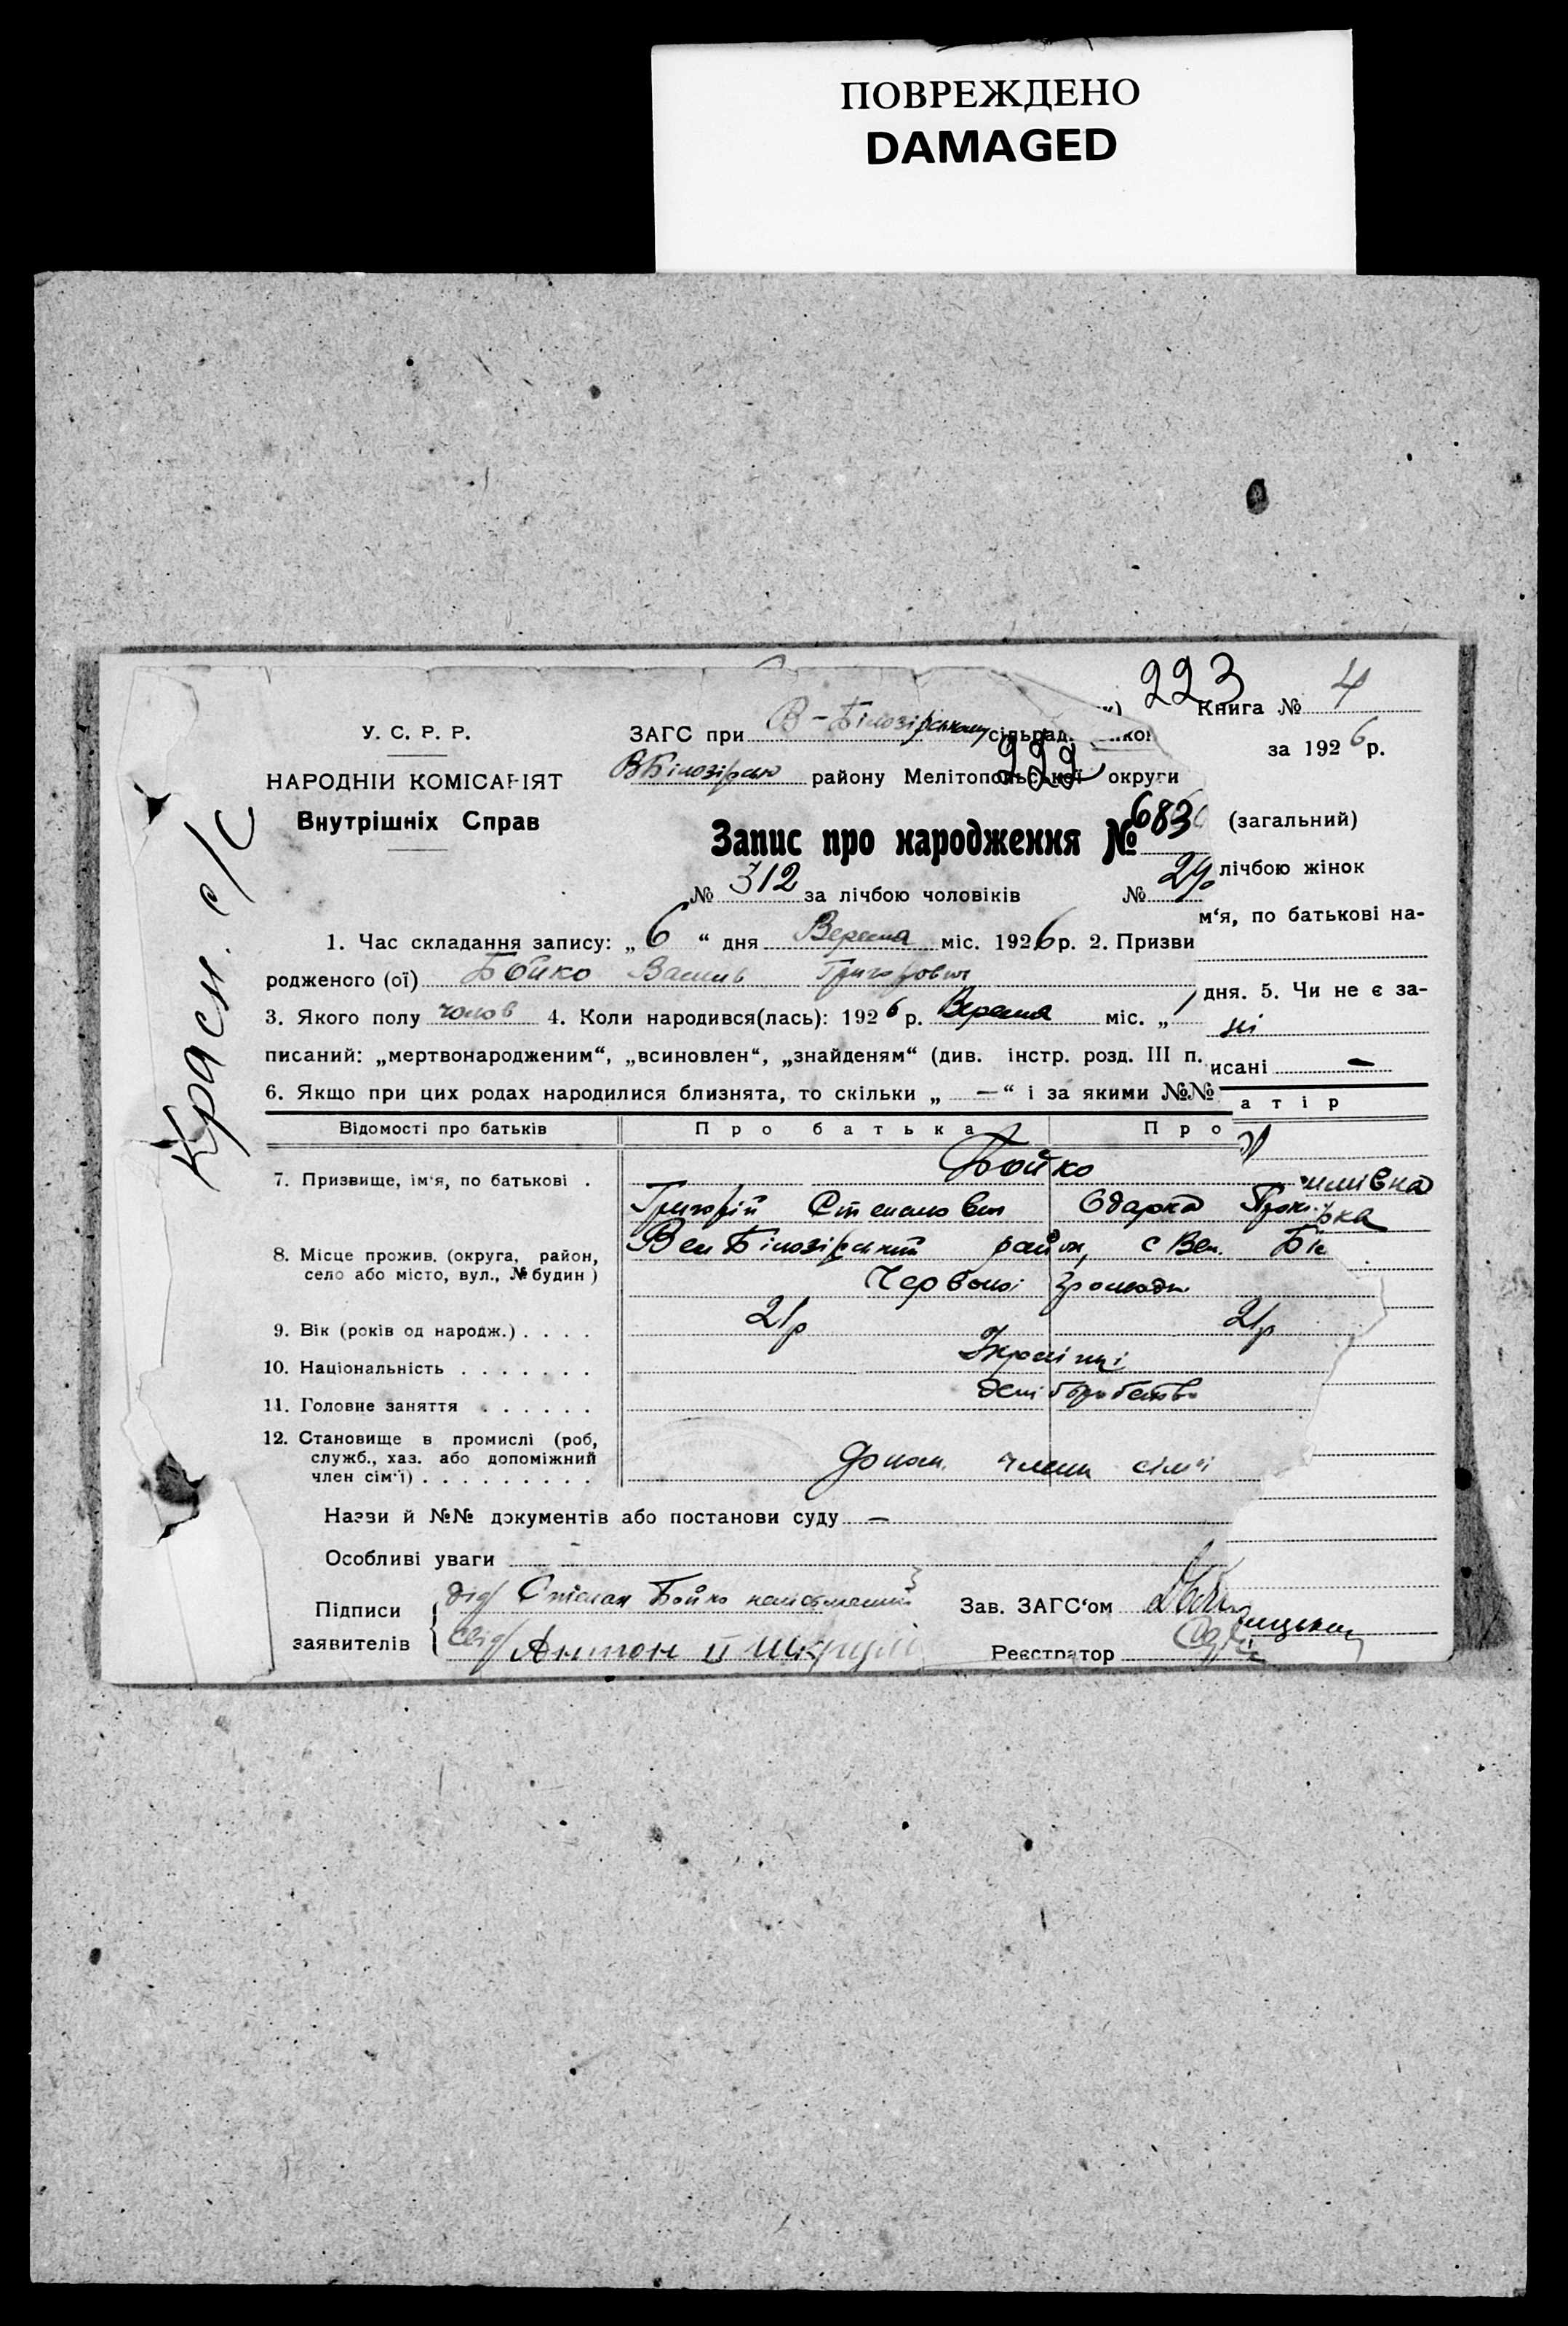 ПОВРЕЖДЕНО
DAMAGED
223 Книга № 4
У. С. Р. Р. ЗАГС при В-Білозірському сільрад.
за 1926 р.
НАРОДНІЙ КОМІСАРІЯТ ВБілозірсько району Мелітопольської округи
222
Внутрішніх Справ
Запис про народження № 683 (загальний)
№ 312 за лічбою чоловіків № лічбою жінок
1. Час складання запису: „6“ дня Вересня міс. 1926 р. 2. Призви м‘я, по батькові на-
родженого (ої) Бойко Василь Григорович
3. Якого полу чолов 4. Коли народився(лась): 1926 р. Вересня міс. „1 дня. 5. Чи не є за-
писаний: „мертвонародженим“, „всиновлен“, „знайденям“ (див. інстр. розд. III п. ні
6. Якщо при цих родах народилися близнята, то скільки „ — “ і за якими №№ исані —
Відомості про батьків Про батька Про атір
7. Призвище, ім‘я, по батькові . Бойко
Григорій Степанович Одарка
8. Місце прожив. (округа, район, ВелБілозірський район, с Вел. Біл ька
село або місто, вул., № будин)
Червоної громади
9. Вік (років од народж.) . . . . 21р 21р
10. Національність . . . . . . . Українці
11. Головне заняття . . . . . . хліборобство
12. Становище в промислі (роб,
служб., хаз. або допоміжний
член сім‘ї) . . . . . . . . . допом. члени сім‘ї
Назви й №№ документів або постанови суду —
Особливі уваги
Підписи дід Степан Бойко неписьменний Зав. ЗАГС‘ом
заявителів свід Антон Реєстратор
Красн. с/с